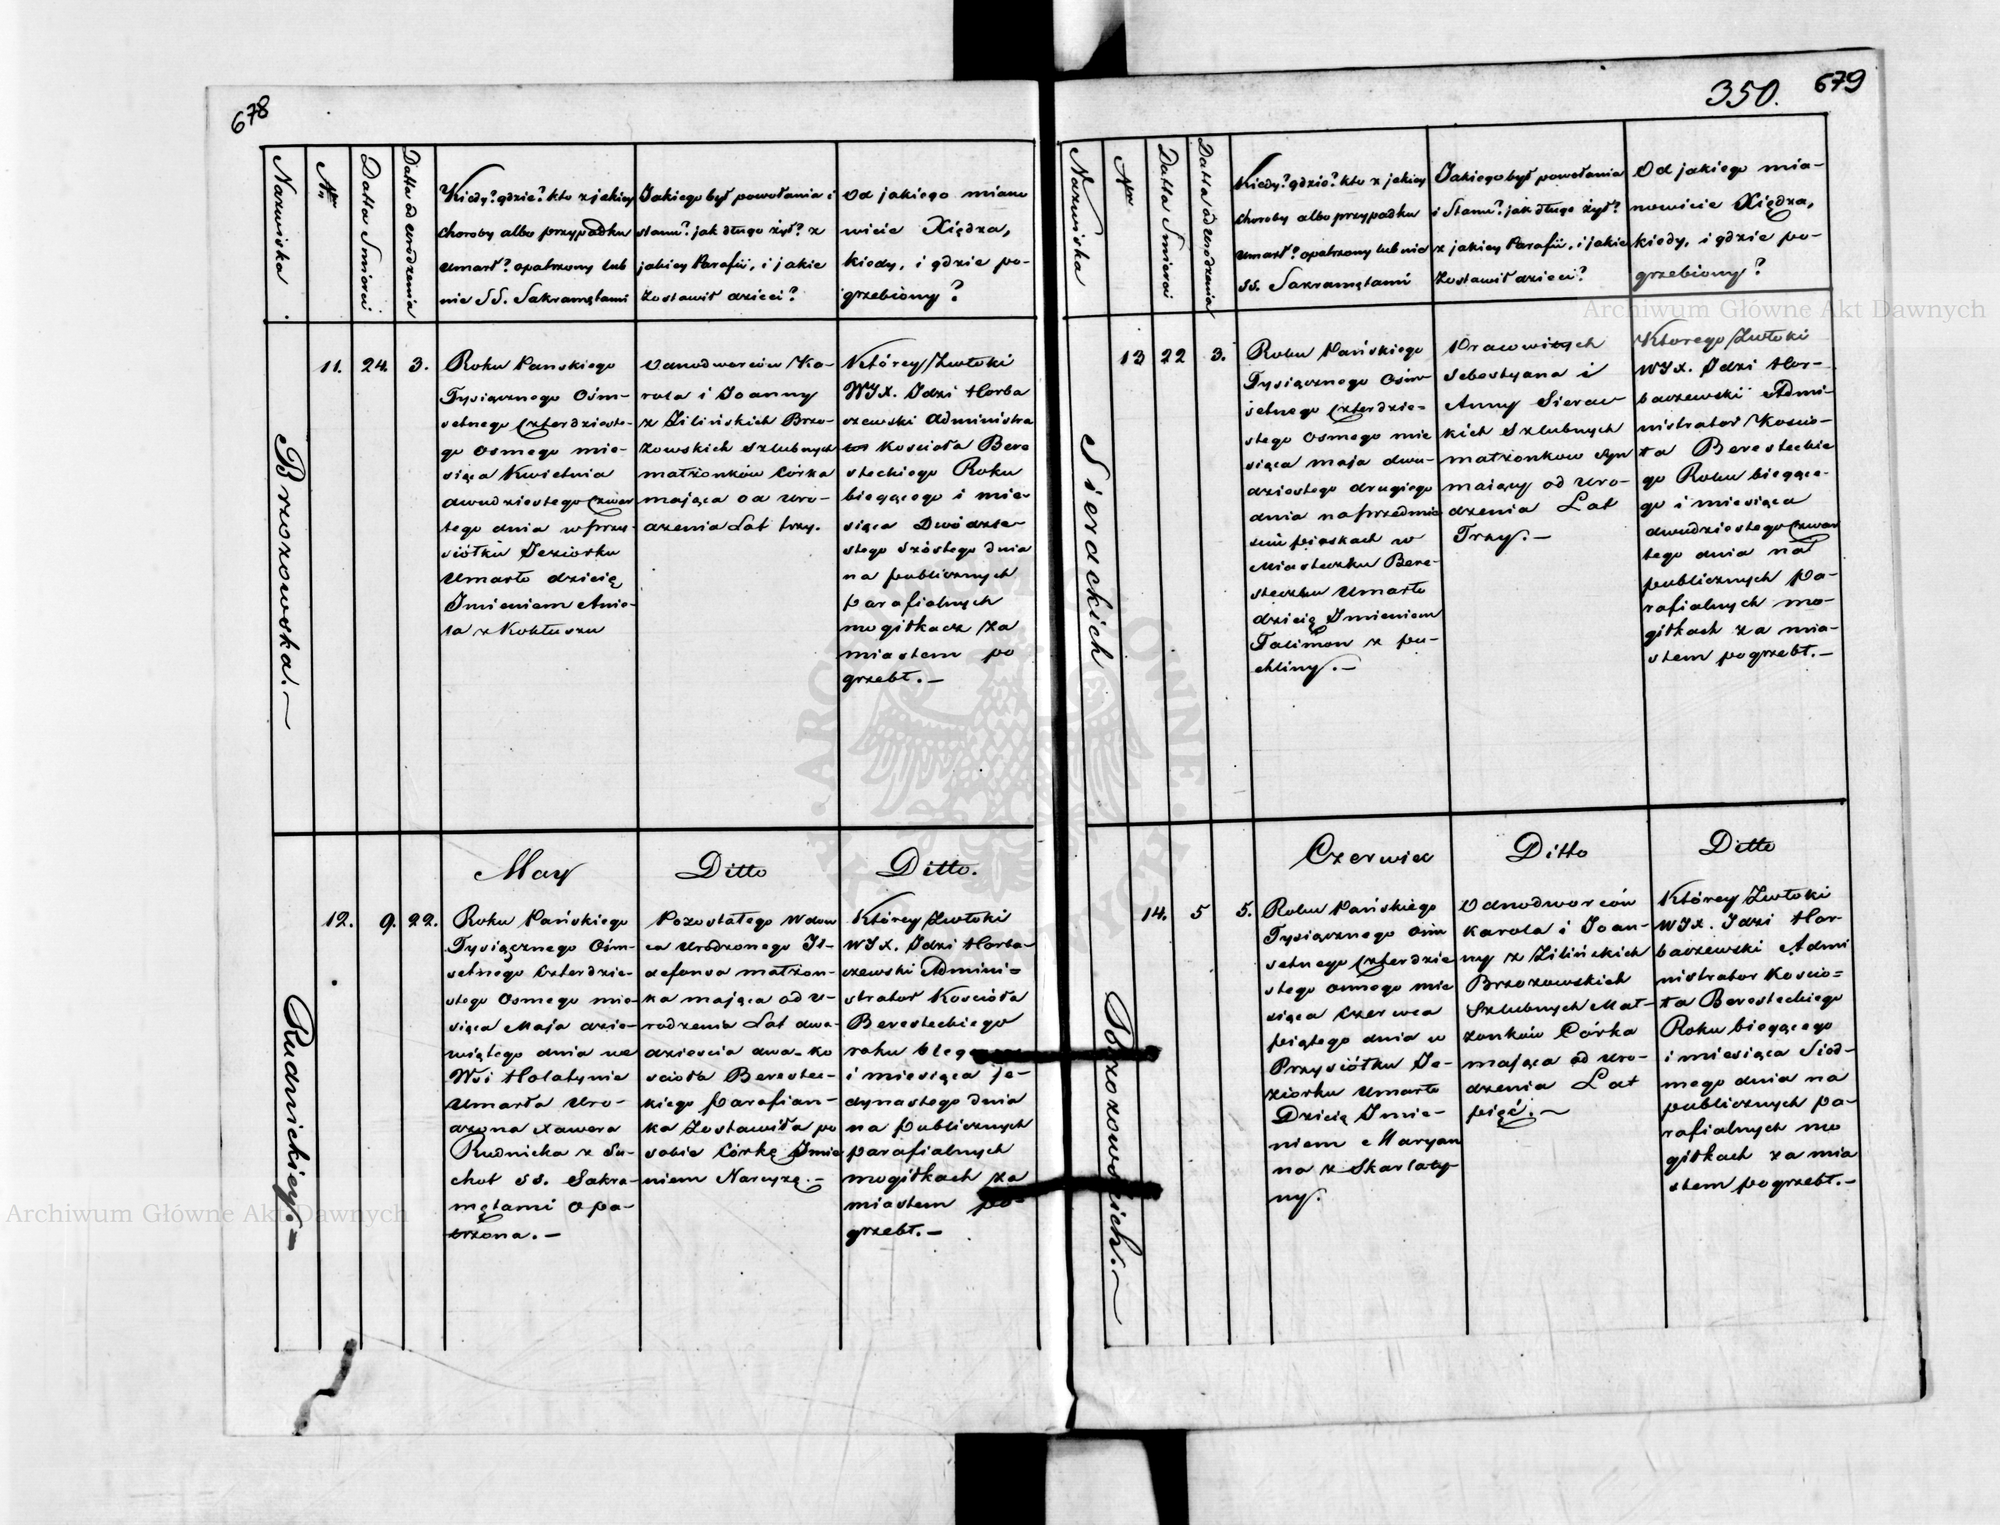 678
Nazwiska
Nr
Datta Smierci
Datta od Urodzenia
Kiedy? gdzie? kto z jakiey
choroby albo przypadku
umarł? opatrzony lub
nie SS. Sakramętami
Jakiego był powołania i
stanu? jak długo żył? z
jakiey Parafii, i jakie
zostawił dzieci?
Od jakiego miano
wicie Xiędza,
kiedy, i gdzie po-
grzebiony?
Brzozowska.
11.
24.
3.
Roku Panskiego
Tysiącznego Ośm-
setnego Czterdzieste-
go Osmego mie-
siąca Kwietnia
dwudziestego Czwar
tego dnia w przy-
siółku Jeziorku
Umarło dziecię
Imieniem Anie-
la z Kokluszu
Odnodworców Ka-
rola i Joanny
z Zilińskich Brzo-
zowskich Szlubnych
małżonków Córka
mająca od Uro-
dzenia Lat trzy.
Którey Zwłoki
WJX. Idzi Horba
czewski Administra
tor Kościoła Bere
steckiego Roku
biegącego i mie-
siąca Dwódzie-
stego Szóstego dnia
na publicznych
parafialnych
mogiłkacz za
miastem po
grzebł.—
Rudnickiey.=
12.
9.
22.
May
Roku Pańskiego
Tysiącznego Ośm-
setnego Czterdzie-
stego Osmego mie-
siąca Maja dzie-
wiątego dnia we
Wsi Holatynie
Umarła Uro-
dzona Xawera
Rudnicka z Su-
chot SS. Sakra-
mętami opa-
trzona.—
Ditto
Pozostałego Wdow
ca Urodzonego Il-
defonsa małżon-
ka mająca od U-
rodzenia Lat dwa-
dzieścia dwa- ko
ścioła Berestec-
kiego Parafian-
ka Zostawiła po
sobie Córkę Imie
niem Narcyzę.—
Ditto.
Którey Zwłoki
WJX. Idzi Horba-
czewski Admini=
strator Kościoła
Beresteckiego
roku bieg
i miesiąca je-
dynastego dnia
na publicznych
parafialnych
mogiłkach za
miastem po-
grzebł.—
350.
679
Nazwiska
Nr
Datta Smierci
Datta od Urodzenia
Kiedy? gdzie? kto z jakiey
choroby albo przypadku
Umarł? opatrzony lub nie
SS. Sakramętami
Jakiego był powołania
i Stanu? jak długo żył?
z jakiey Parafii, i jakie
zostawił dzieci?
Od jakiego mia-
nowicie Xiędza,
kiedy, i gdzie po-
grzebiony?
Sierackich
13
22
3.
Roku Pańskiego
Tysiącznego Ośm-
setnego Czterdzie-
stego Osmego mie
siąca maja dwu-
dziestego drugiego
dnia na przedmie
ściu piaskach w
Miasteczku Bere-
steczku Umarło
dziecię Imieniem
Falimon z pu-
chliny.—
Pracowitych
Sebestyana i
Anny Sierac
kich Szlubnych
małżonkow syn
maiący od Uro-
dzenia Lat
Trzy.—
Ktorego Zwłoki
WJX. Idzi Hor-
baczewski Admi-
nistrator Koscio-
ła Beresteckie
go Roku biegące-
go i miesiąca
dwudziestego Czwar
tego dnia na
publicznych pa-
rafialnych mo-
giłkach za mia-
stem pogrzebł.—
Brzozowskich.—
14.
5
5.
Czerwiec
Roku Pańskiego
Tysiącznego ośm
setnego Czterdzie
stego osmego mie
siąca Czerwca
piątego dnia w
Przysiółku Je-
ziorku Umarło
Dziecię Imie-
niem Maryan
na z Skarlaty-
ny.
Ditto
Odnodworców
Karola i Joan-
ny z Zilińskich
Brzozowskich
Szlubnych Mał-
żonków Córka
mająca od Uro-
dzenia Lat
pięć.—
Ditto
Którey Zwłoki
WJX. Idzi Hor-
baczewski Admi
nistrator Koscio=
ła Beresteckiego
Roku biegącego
i miesiąca Siód-
mego dnia na
publicznych pa-
rafialnych mo
giłkach za mia
stem pogrzebł.—
Archiwum Główne Akt Dawnych
Archiwum Główne Akt Dawnych